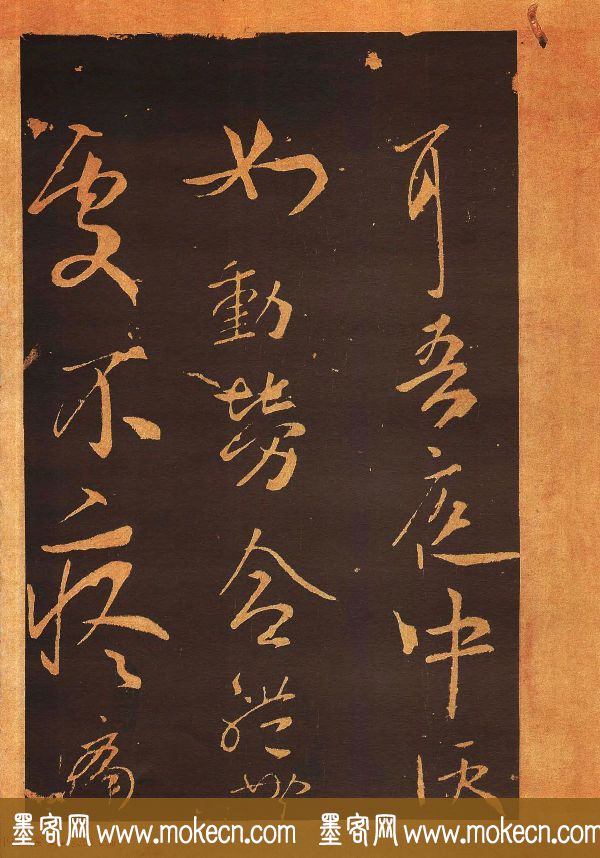 耳吾庭中
如動勞合體無
處不疼痛
墨客网 www.mokecn.com 墨客网 www.mokecn.com